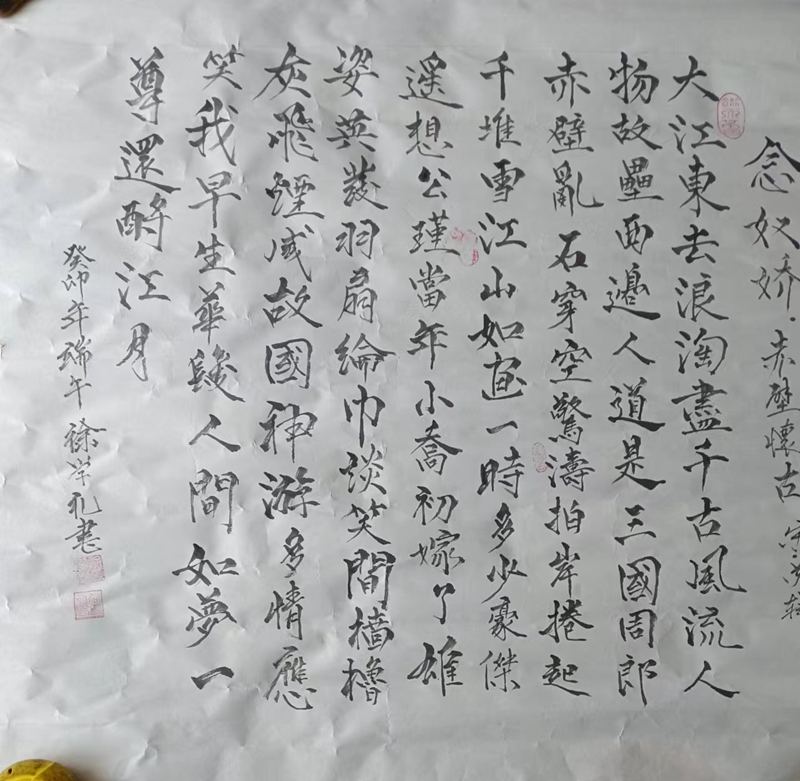 念奴娇·赤壁懷古 宋 苏轼
大江東去浪淘盡千古風流人
物故壘西邊人道是三國周郎
赤壁亂石穿空驚濤拍岸捲起
千堆雪江山如畫一時多少豪傑
遥想公瑾當年小喬初嫁了雄
姿英发羽扇綸巾談笑間檣櫓
灰飛煙滅故國神游多情應
笑我早生華髮人間如夢一
尊還酹江月
癸卯年端午 徐洋礼書